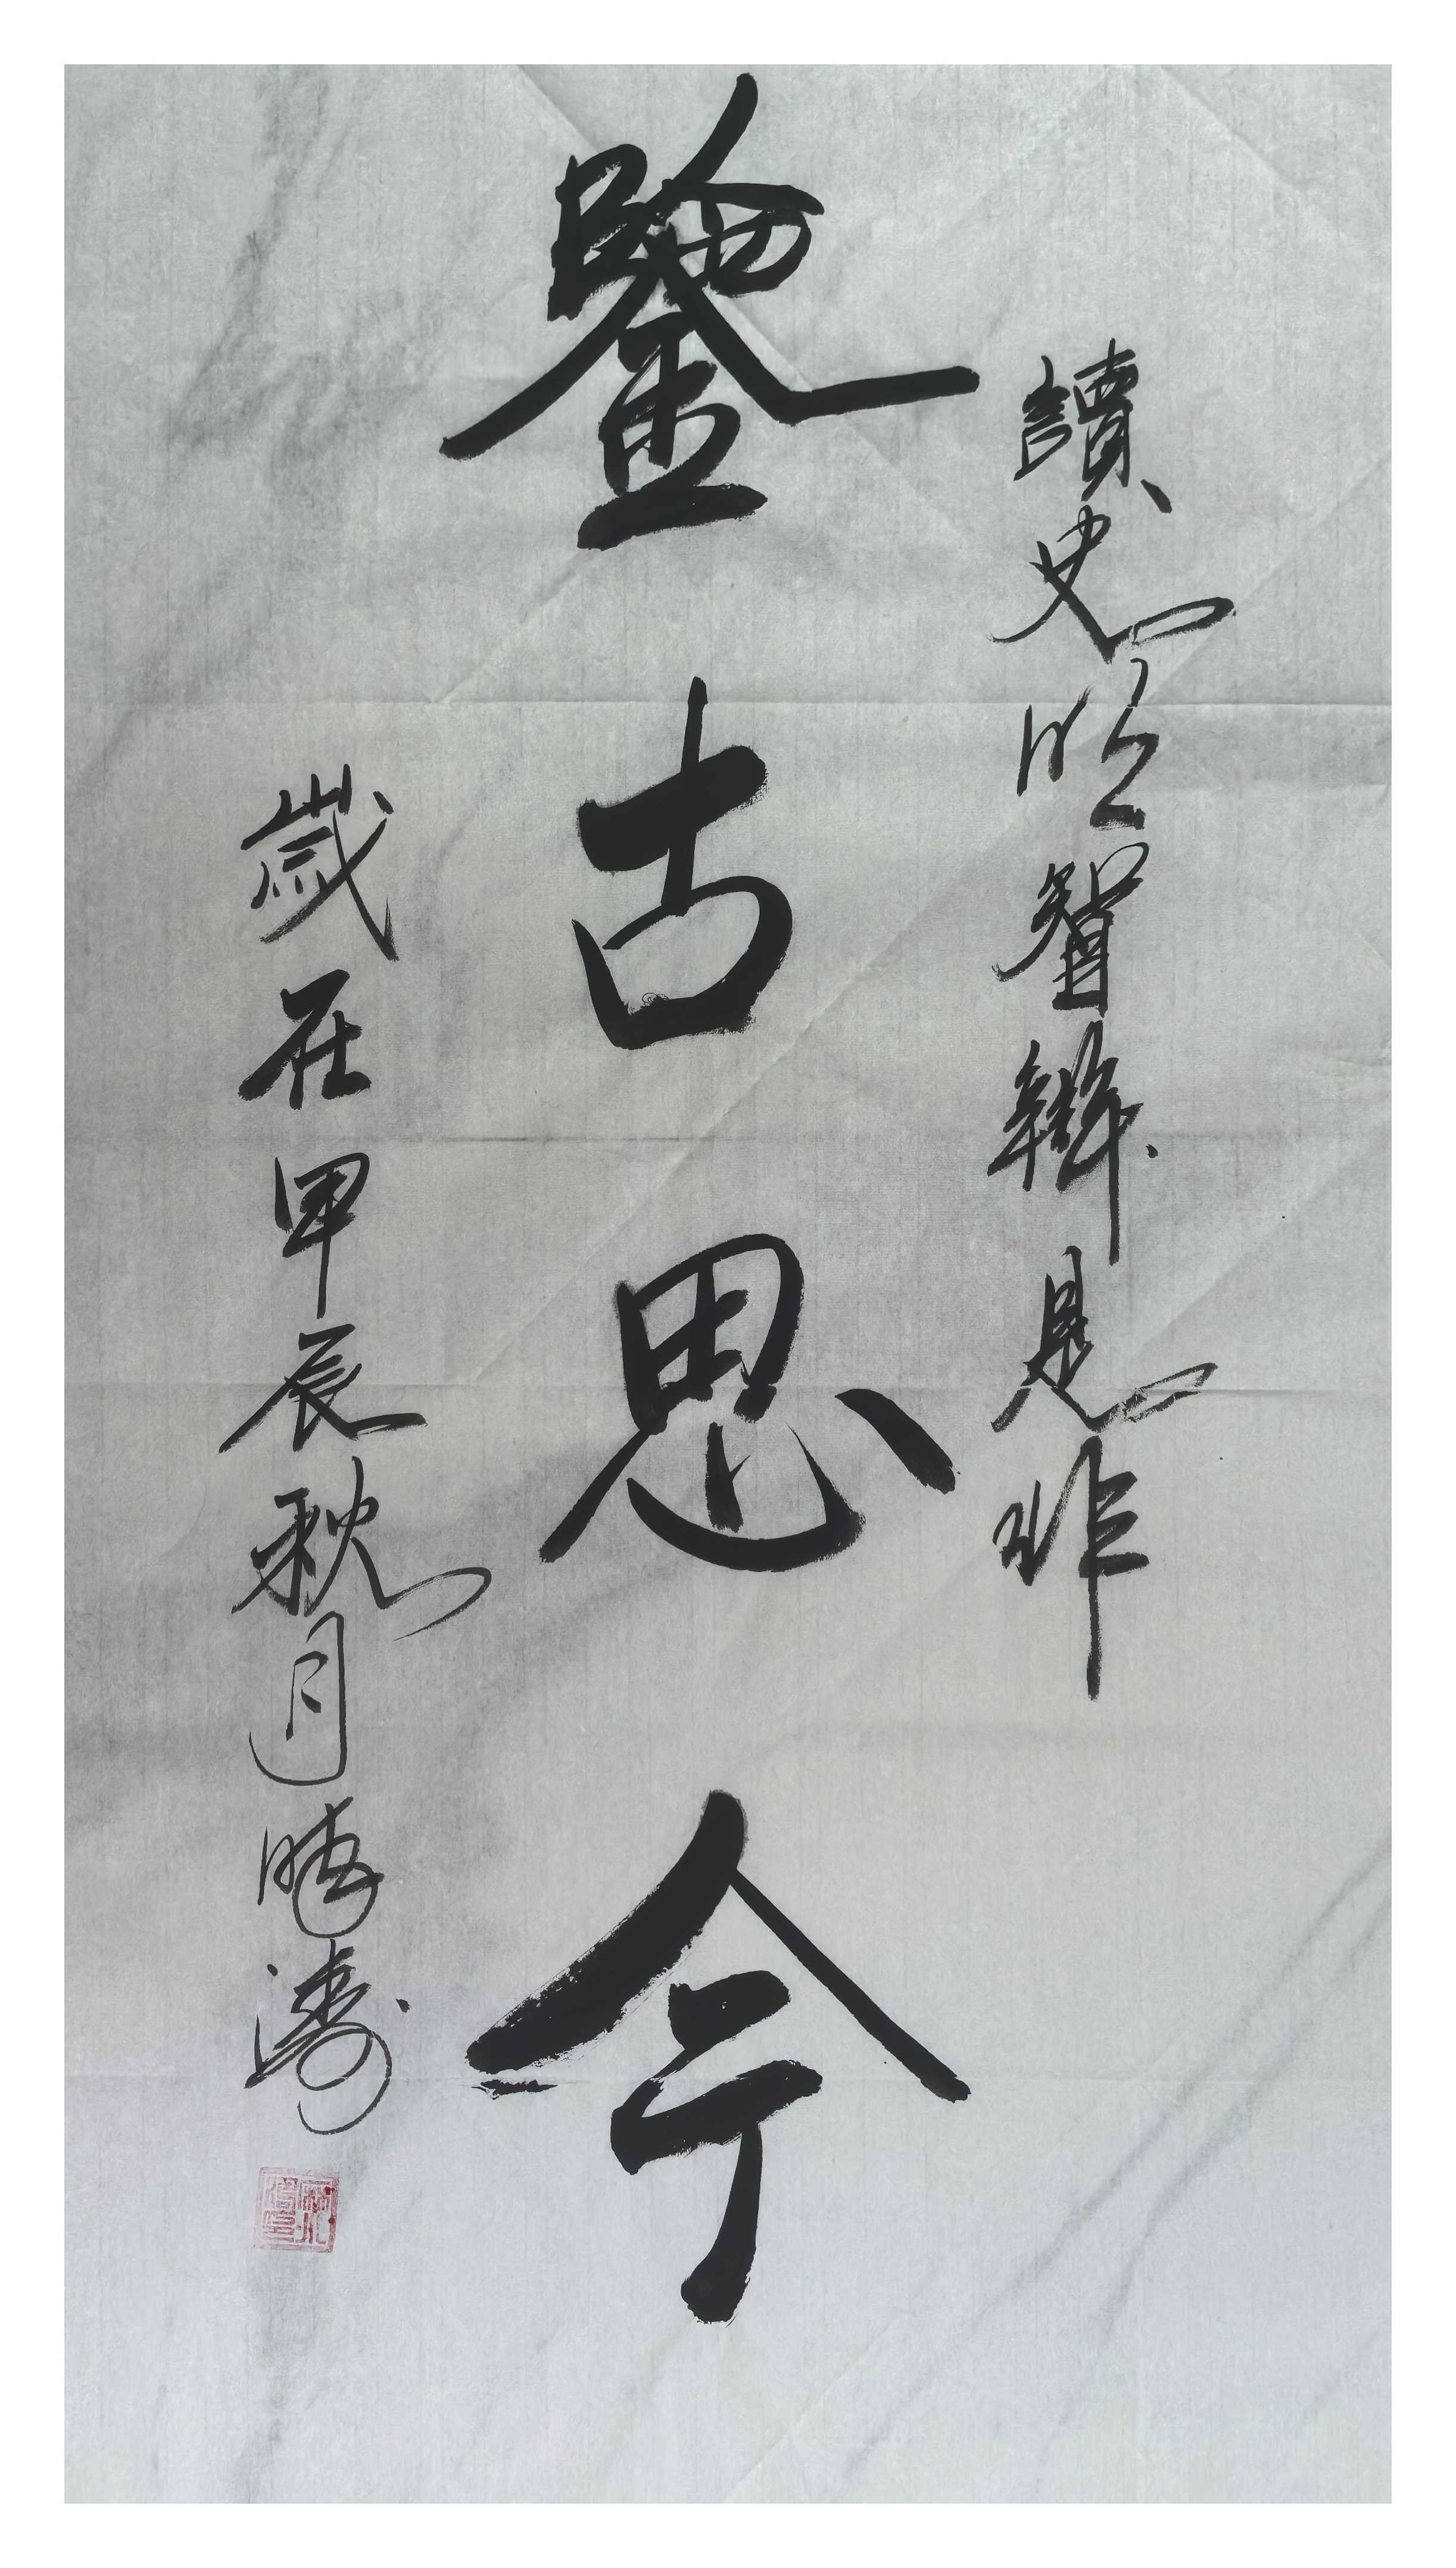 讀史明智辯是非
鑒古思今
歲在甲辰秋月晓濤